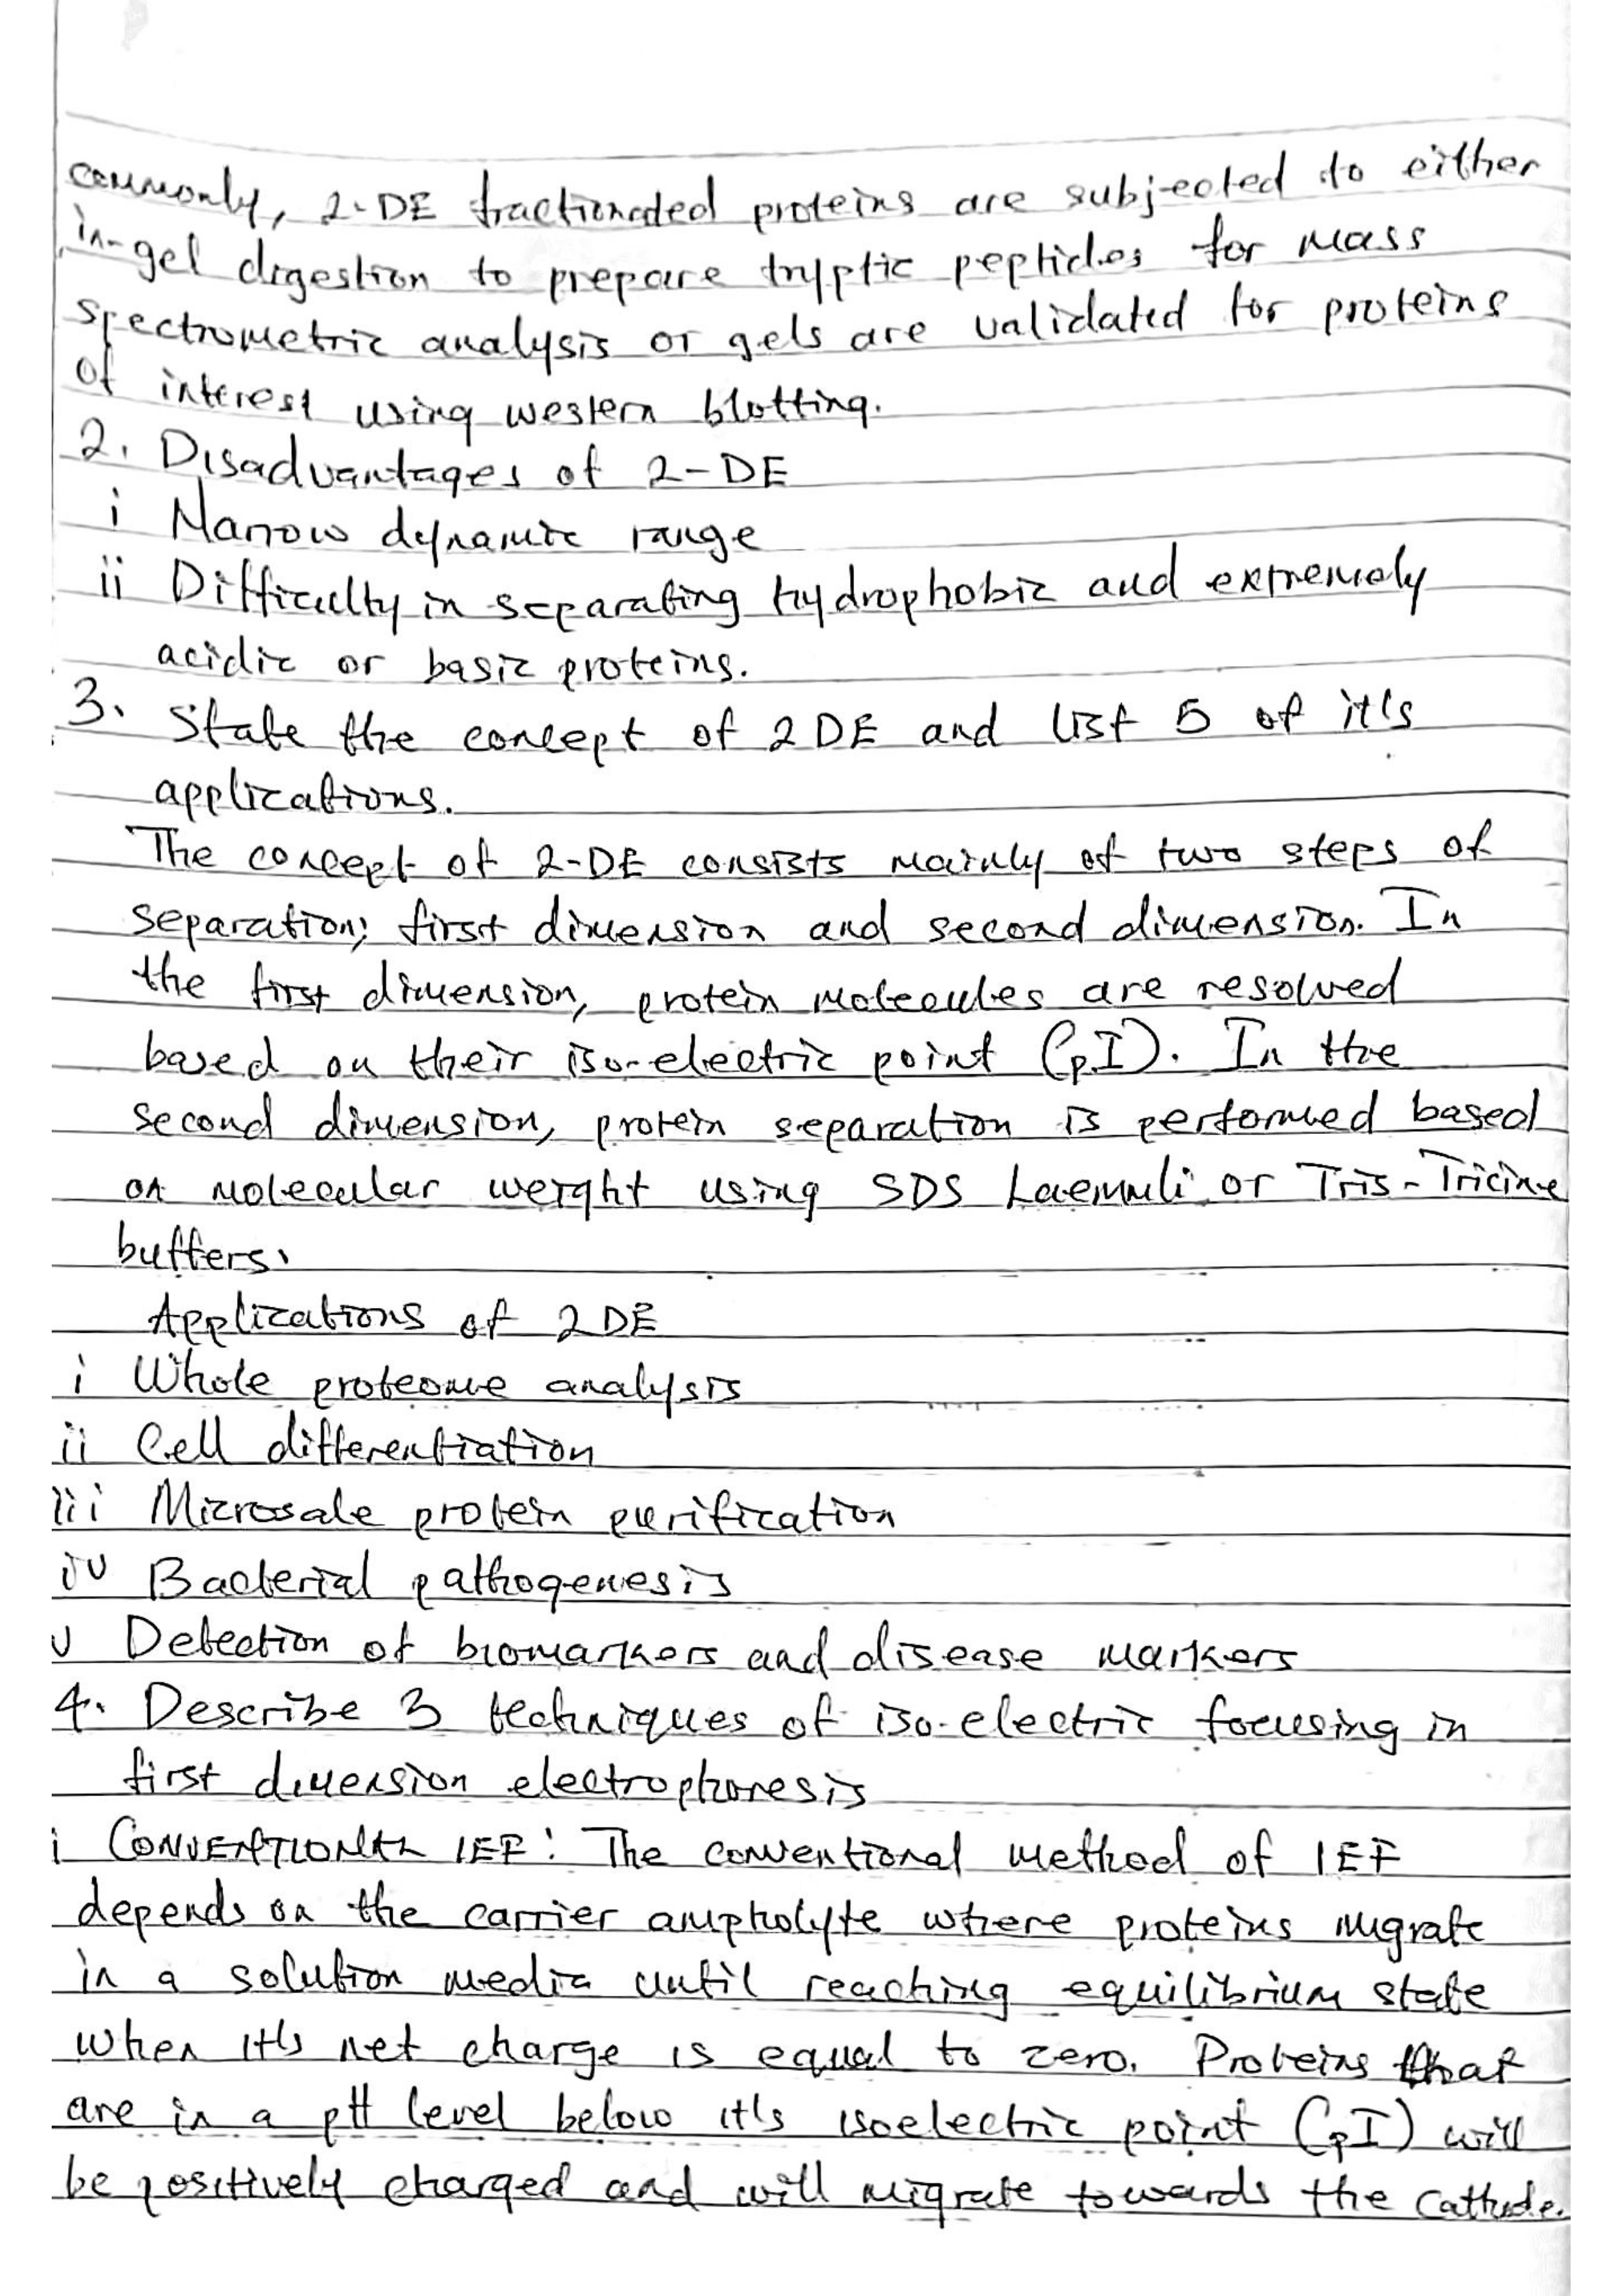 commonly, 2-DE fractionated proteins are subjected to either
in-gel digestion to prepare tryptic peptides for mass
spectrometric analysis or gels are validated for proteins
of interest using western blotting.
2. Disadvantages of 2-DE
i Narrow dynamic range
ii Difficulty in separating hydrophobic and extremely
acidic or basic proteins.
3. State the concept of 2DE and list 5 of it's
applications.
The concept of 2-DE consists mainly of two steps of
separation; first dimension and second dimension. In
the first dimension, protein molecules are resolved
based on their iso-electric point (pI). In the
second dimension, protein separation is performed based
on molecular weight using SDS Laemmli or Tris-Tricine
buffers.
Applications of 2DE
i Whole proteome analysis
ii Cell differentiation
iii Microsale protein purification
iv Bacterial pathogenesis
v Detection of biomarkers and disease markers
4. Describe 3 techniques of iso-electric focusing in
first dimension electrophoresis
i CONVENTIONAL IEF: The conventional method of IEF
depends on the carrier ampholyte where proteins migrate
in a solution media until reaching equilibrium state
when it's net charge is equal to zero. Proteins that
are in a pH level below it's isoelectric point (pI) will
be positively charged and will migrate towards the cathode.